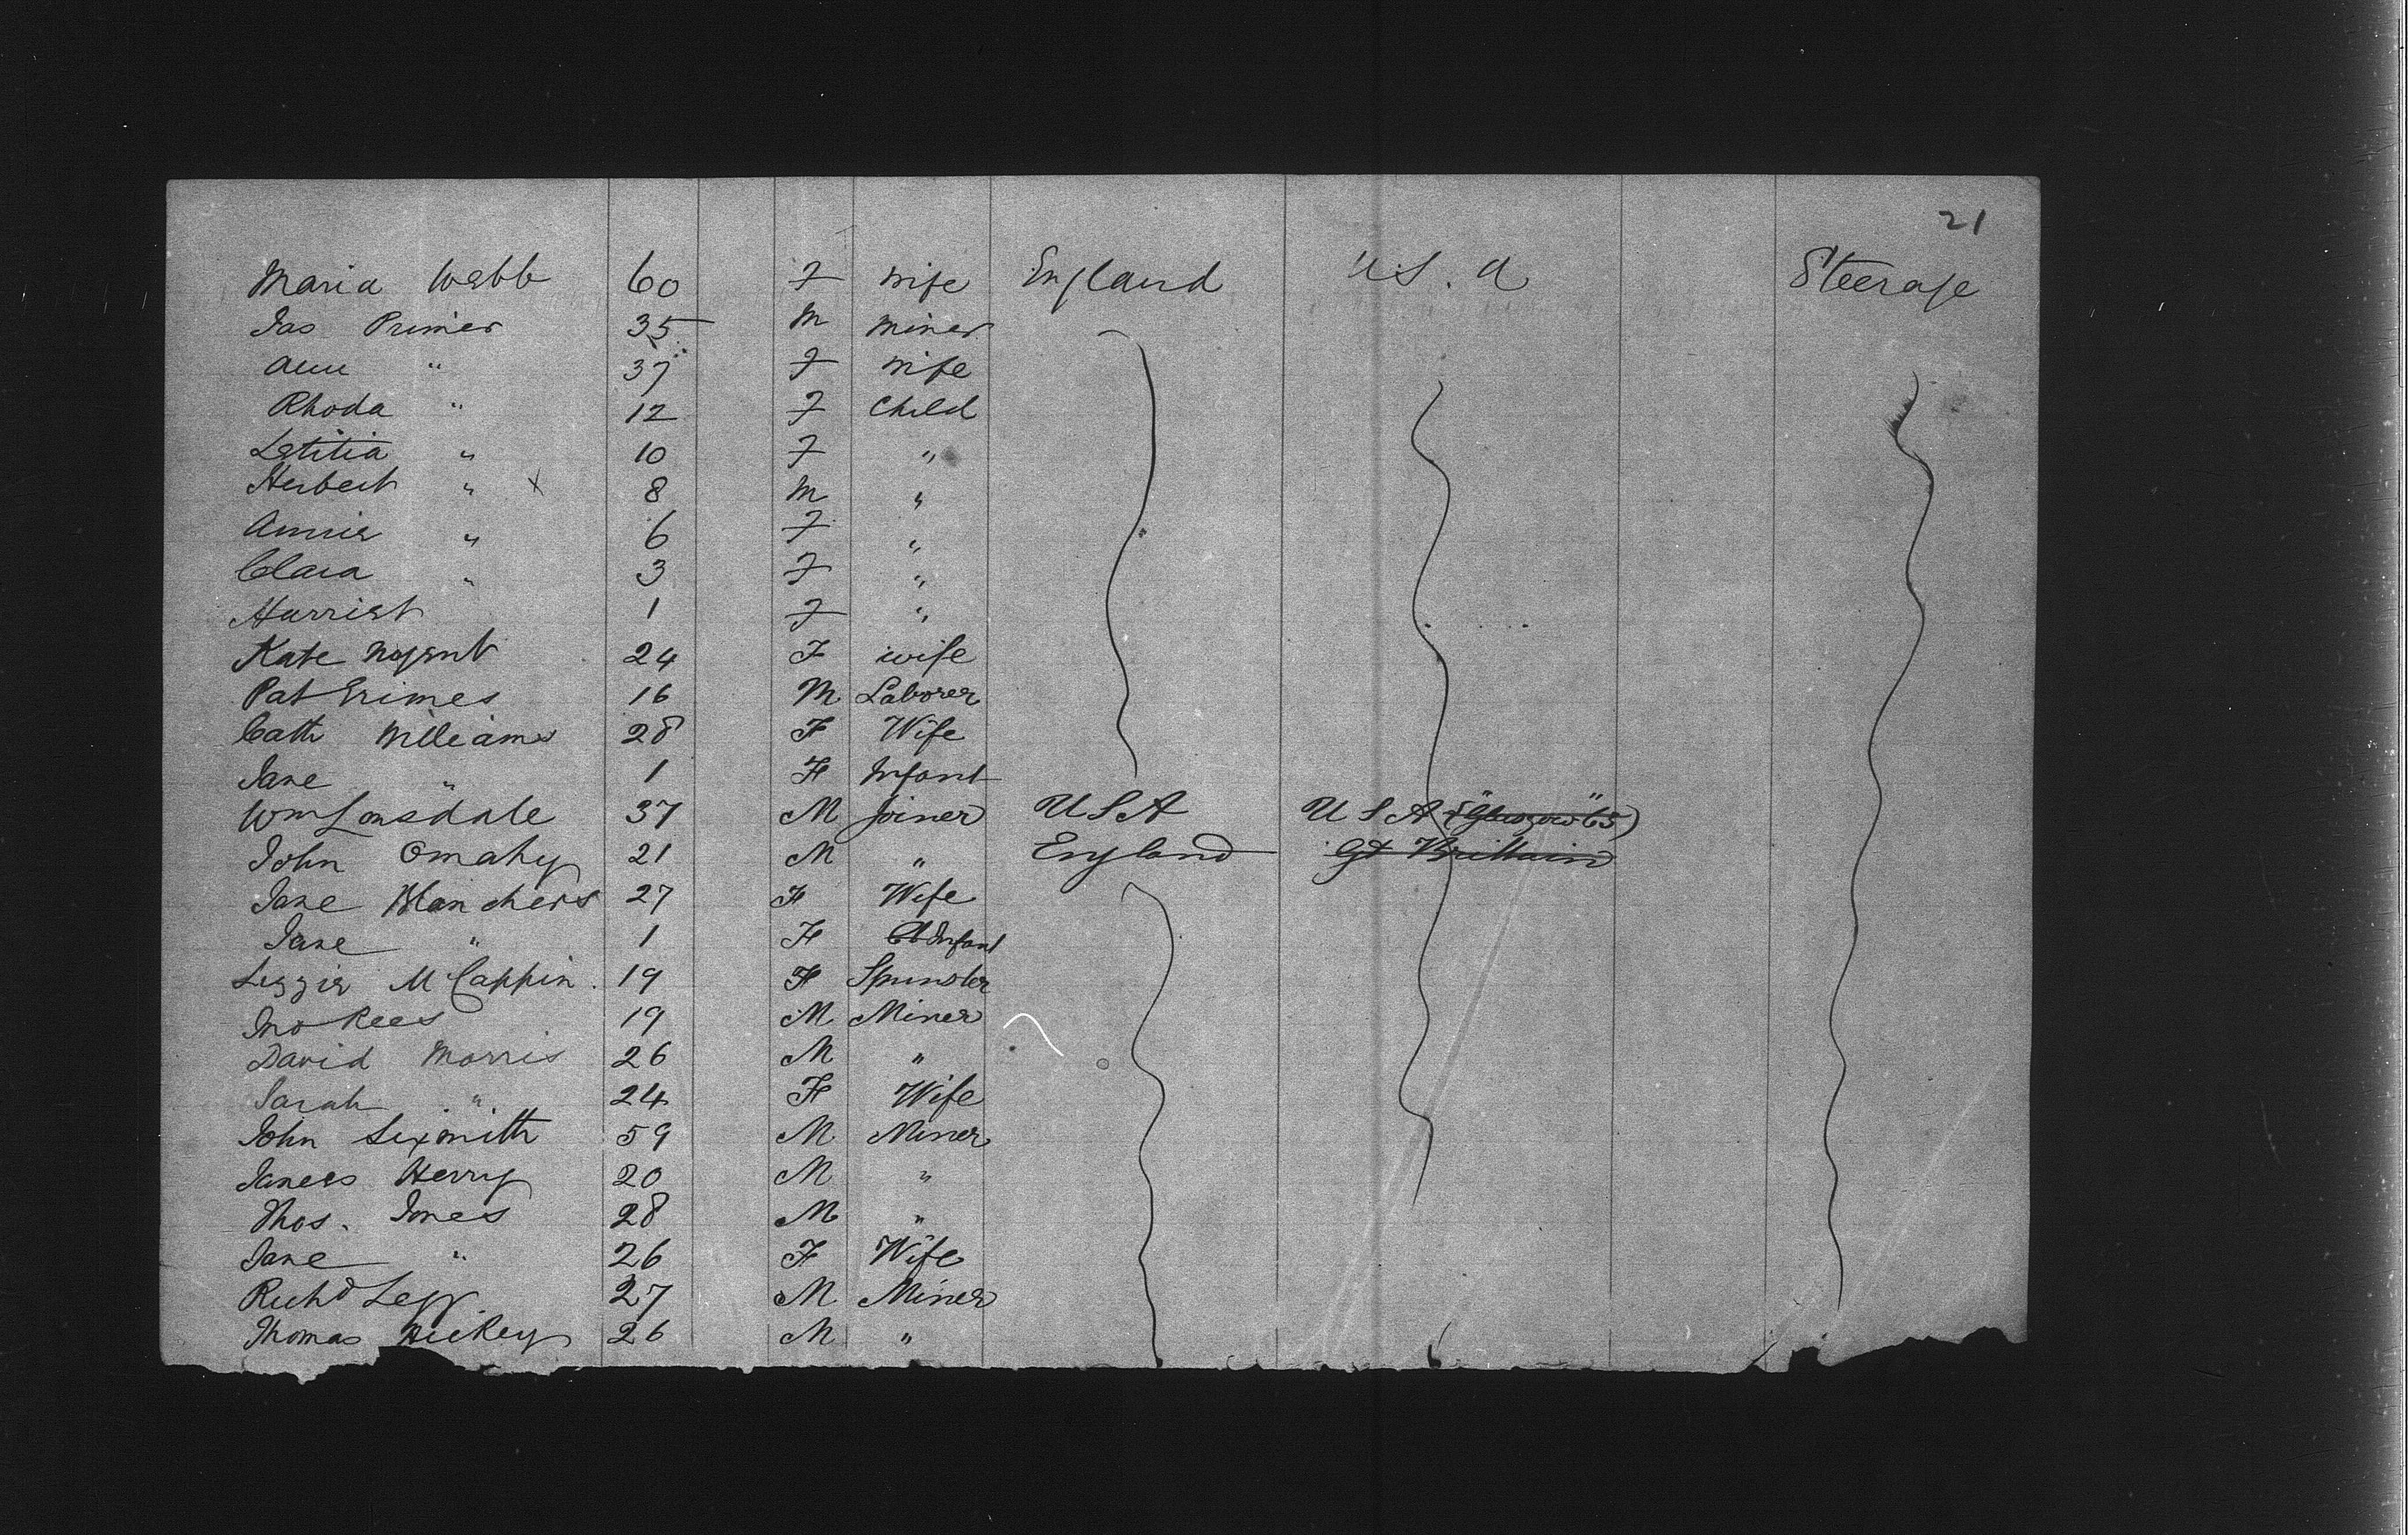 21
Maria Webb 60 F Wife England U.S.A Steerage
Jas Primer 35 M Miner
Ann " 37 F Wife
Rhoda " 12 F Child
Letitia " 10 F "
Herbert " x 8 M "
Annie " 6 F "
Clara " 3 F "
Harriet 1 F "
Kate Nugent 24 F Wife
Pat Grimes 16 M Laborer
Cath Williams 28 F Wife
Jane " 1 F Infant
Wm Lonsdale 37 M Joiner USA USA
John Omahy 21 M " England Gt Brittain
Jane Manchers 27 F Wife
Jane " 1 F Infant
Lizzie McCappin 19 F Spinster
Jno Rees 19 M Miner
David Morris 26 M "
Sarah " 24 F Wife
John Sixmith 59 M Miner
James Henry 20 M "
Thos. Jones 28 M "
Jane " 26 F Wife
Richd Legg 27 M Miner
Thomas Hickey 26 M "